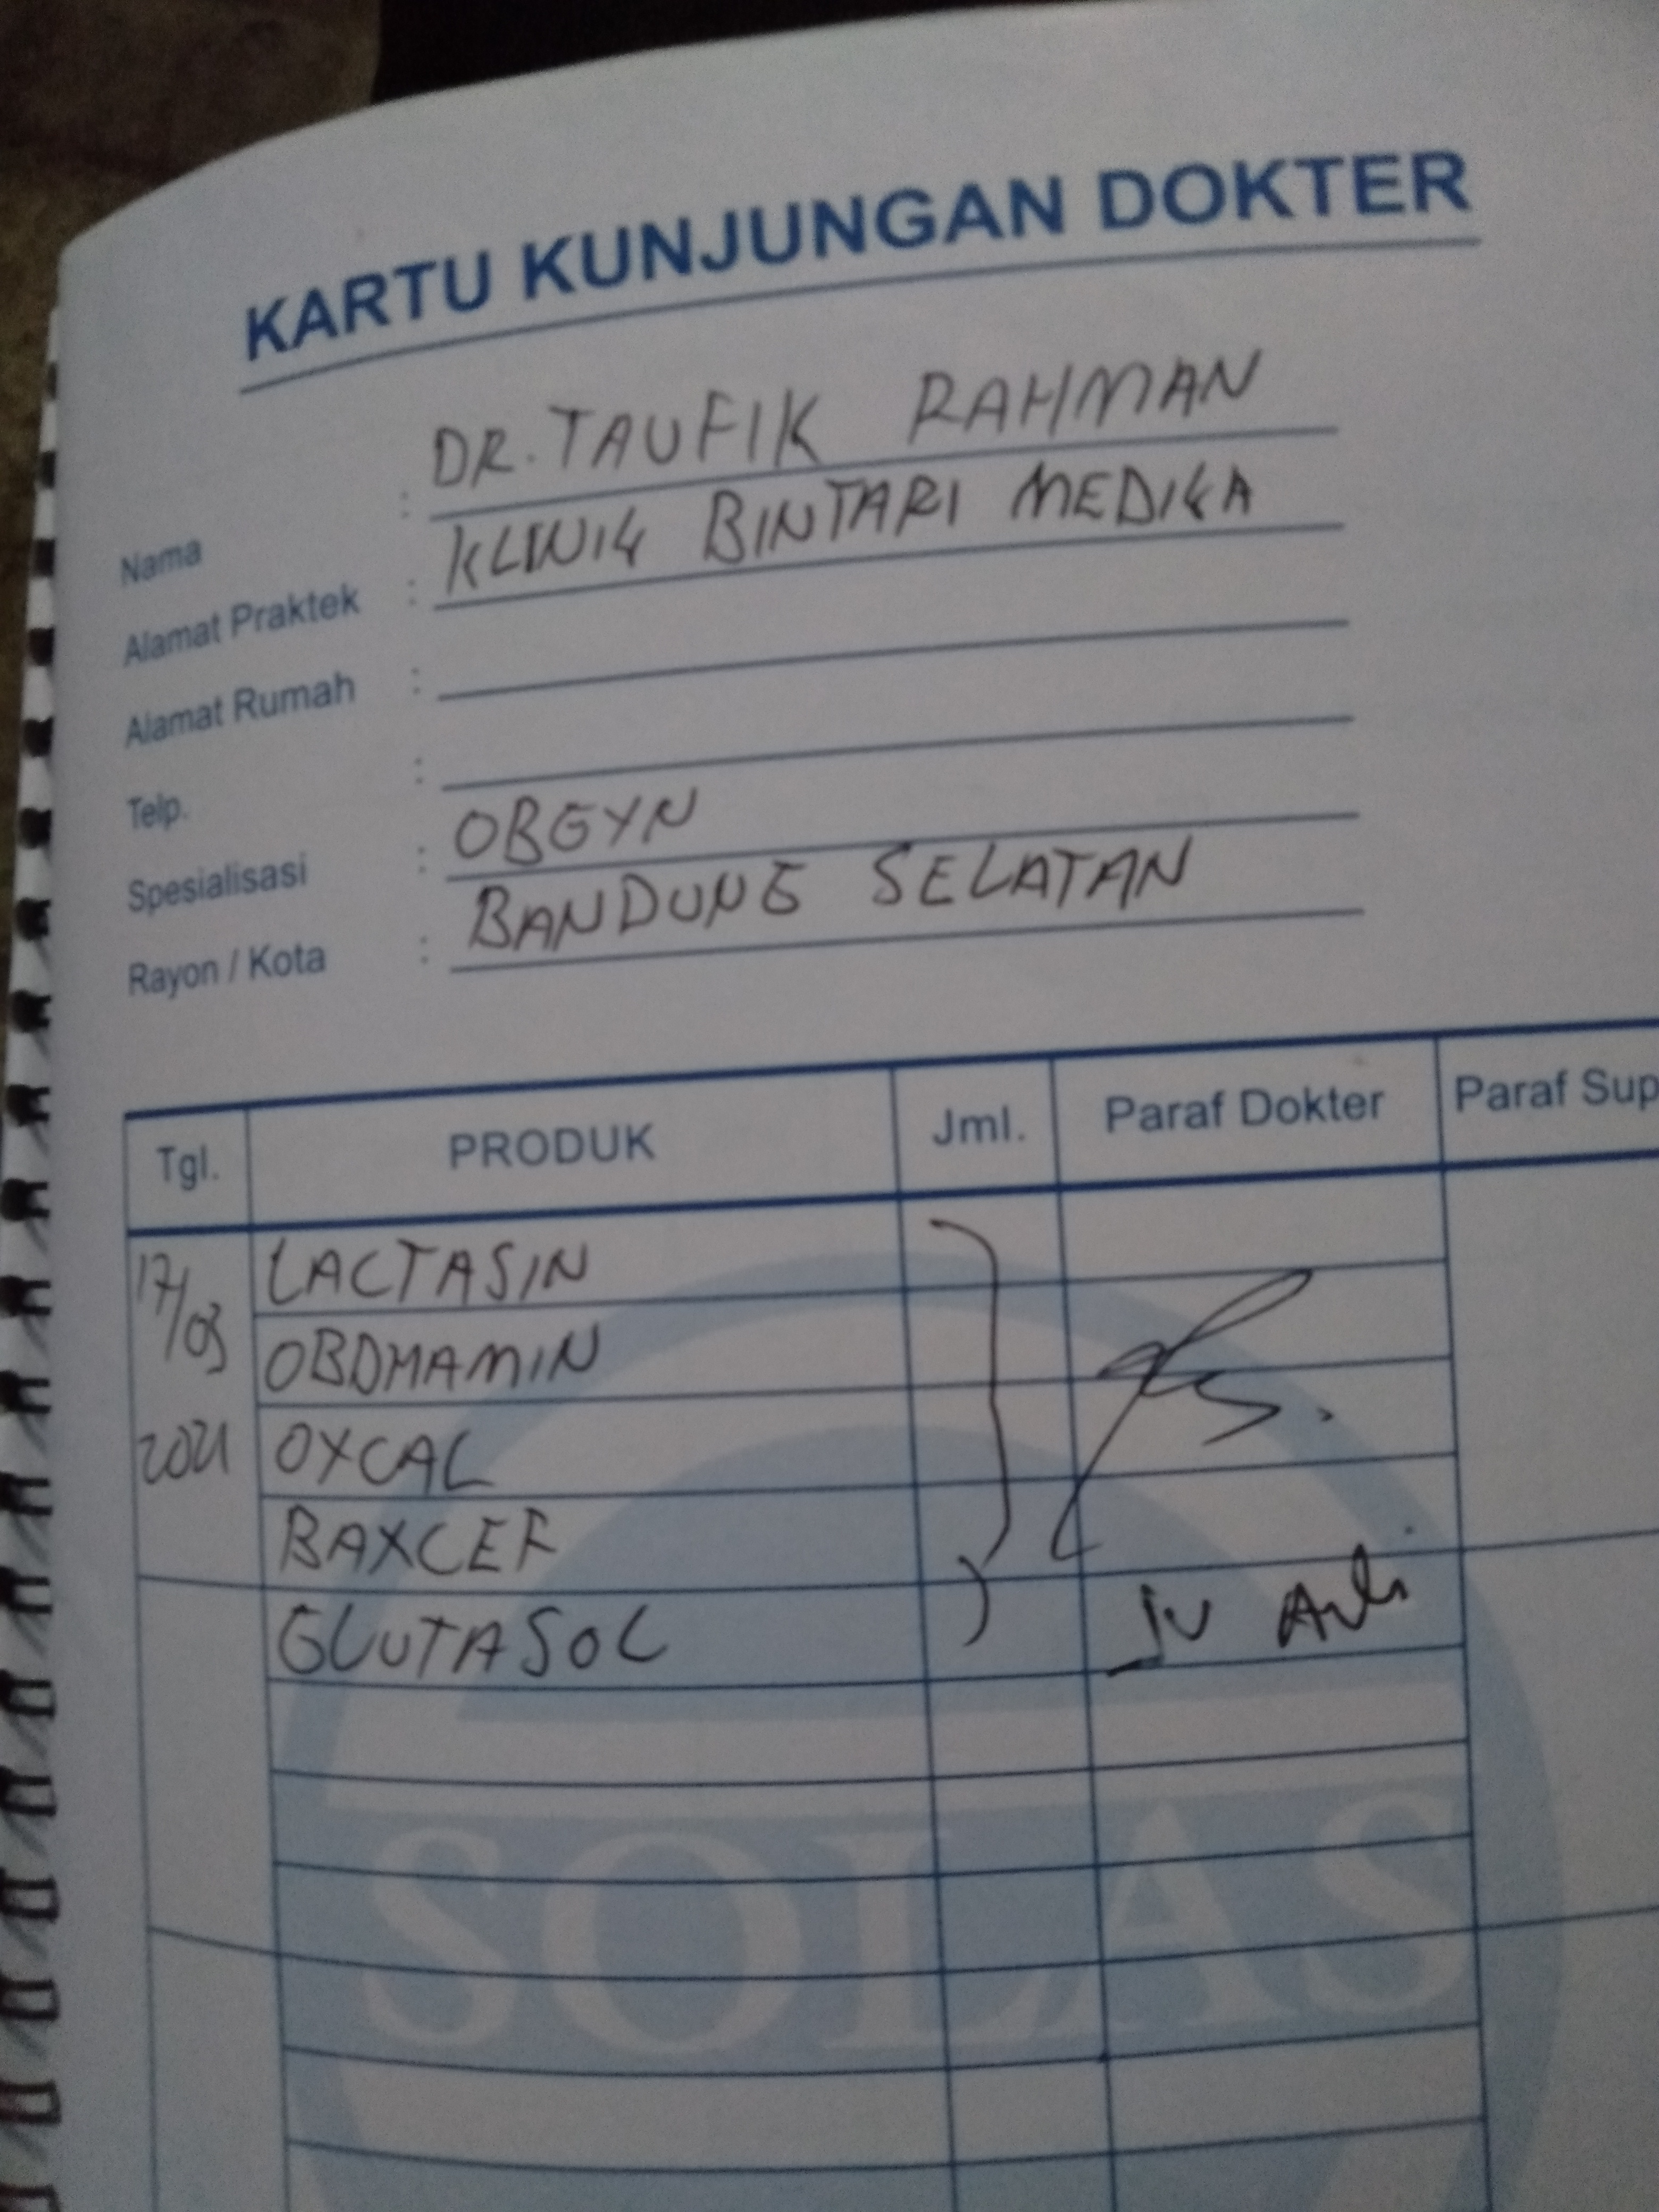 KARTU KUNJUNGAN DOKTER
Nama : DR. TAUFIK RAHMAN
Alamat Praktek : KLINIK BINTARI MEDIKA
Alamat Rumah :
Telp. :
Spesialisasi : OBGYN
Rayon / Kota : BANDUNG SELATAN
Tgl. PRODUK Jml. Paraf Dokter Paraf Sup
17/03 LACTASIN
OBDMAMIN
2021 OXCAL
BAXCEF
GLUTASOL
SOLAS